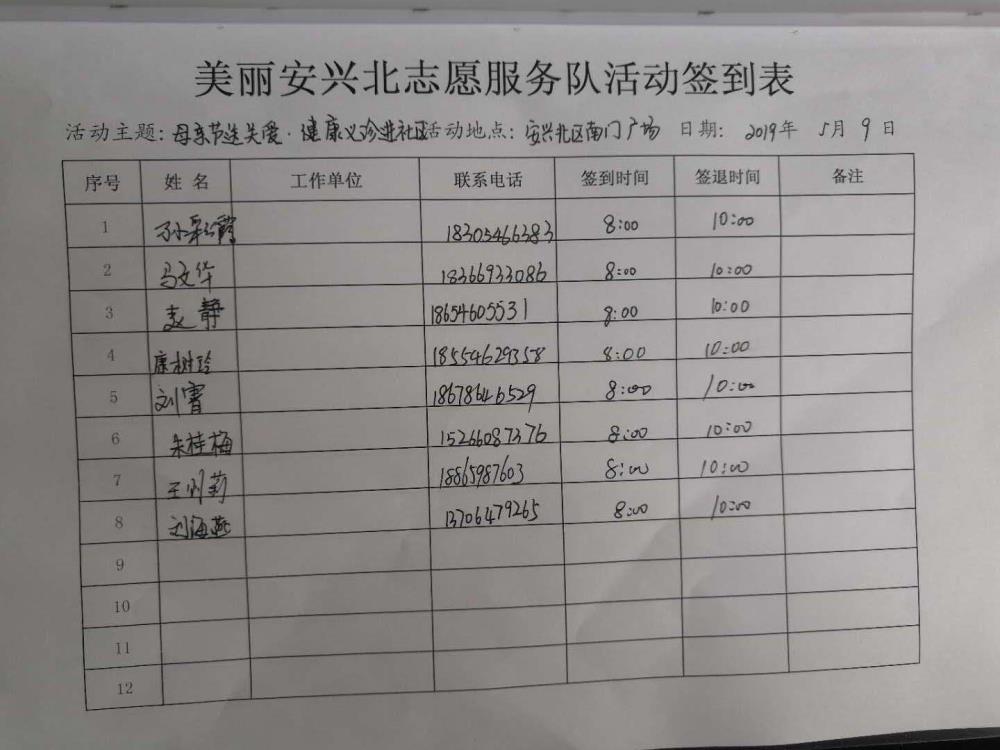 美丽安兴北志愿服务队活动签到表
活动主题: 母亲节送关爱·健康义诊进社区 活动地点: 安兴北区南门广场 日期: 2019年 5月 9日
序号 姓名 工作单位 联系电话 签到时间 签退时间 备注
1 孙彩霞 18303466383 8:00 10:00
2 马文华 18366933086 8:00 10:00
3 袁静 18654605531 8:00 10:00
4 康树玲 18554629358 8:00 10:00
5 刘霄 18678646529 8:00 10:00
6 朱桂梅 15266087376 8:00 10:00
7 王 莉 18865987603 8:00 10:00
8 刘海燕 13706479265 8:00 10:00
9
10
11
12